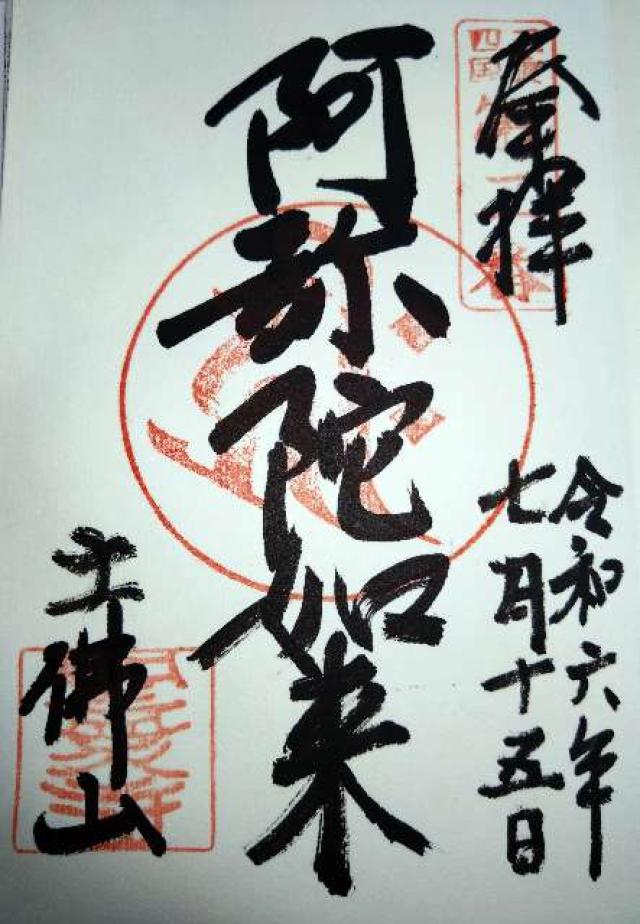 奉拝
令和六年
七月十五日
阿弥陀如来
土佛山